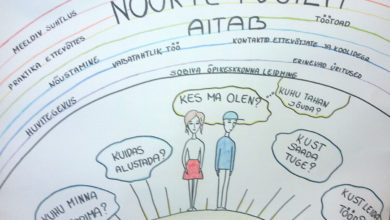 NOORTE
AITAB
MEELDIV SUHTLUS
TÖÖTOAD
PRAKTIKA ETTEVÕTETES
KONTAKTID ETTEVÕTJATE JA KOOLIDEGA
NÕUSTAMINE
VABATAHTLIK TÖÖ
ERINEVAD ÜRITUSED
HUVITEGEVUS
SOBIVA ÕPIKESKKONNA LEIDMINE
KES MA OLEN?
KUHU TAHAN
JÕUDA?
KUIDAS
ALUSTADA?
KUST
SAADA
TUGE?
KUHU MINNA
KUST